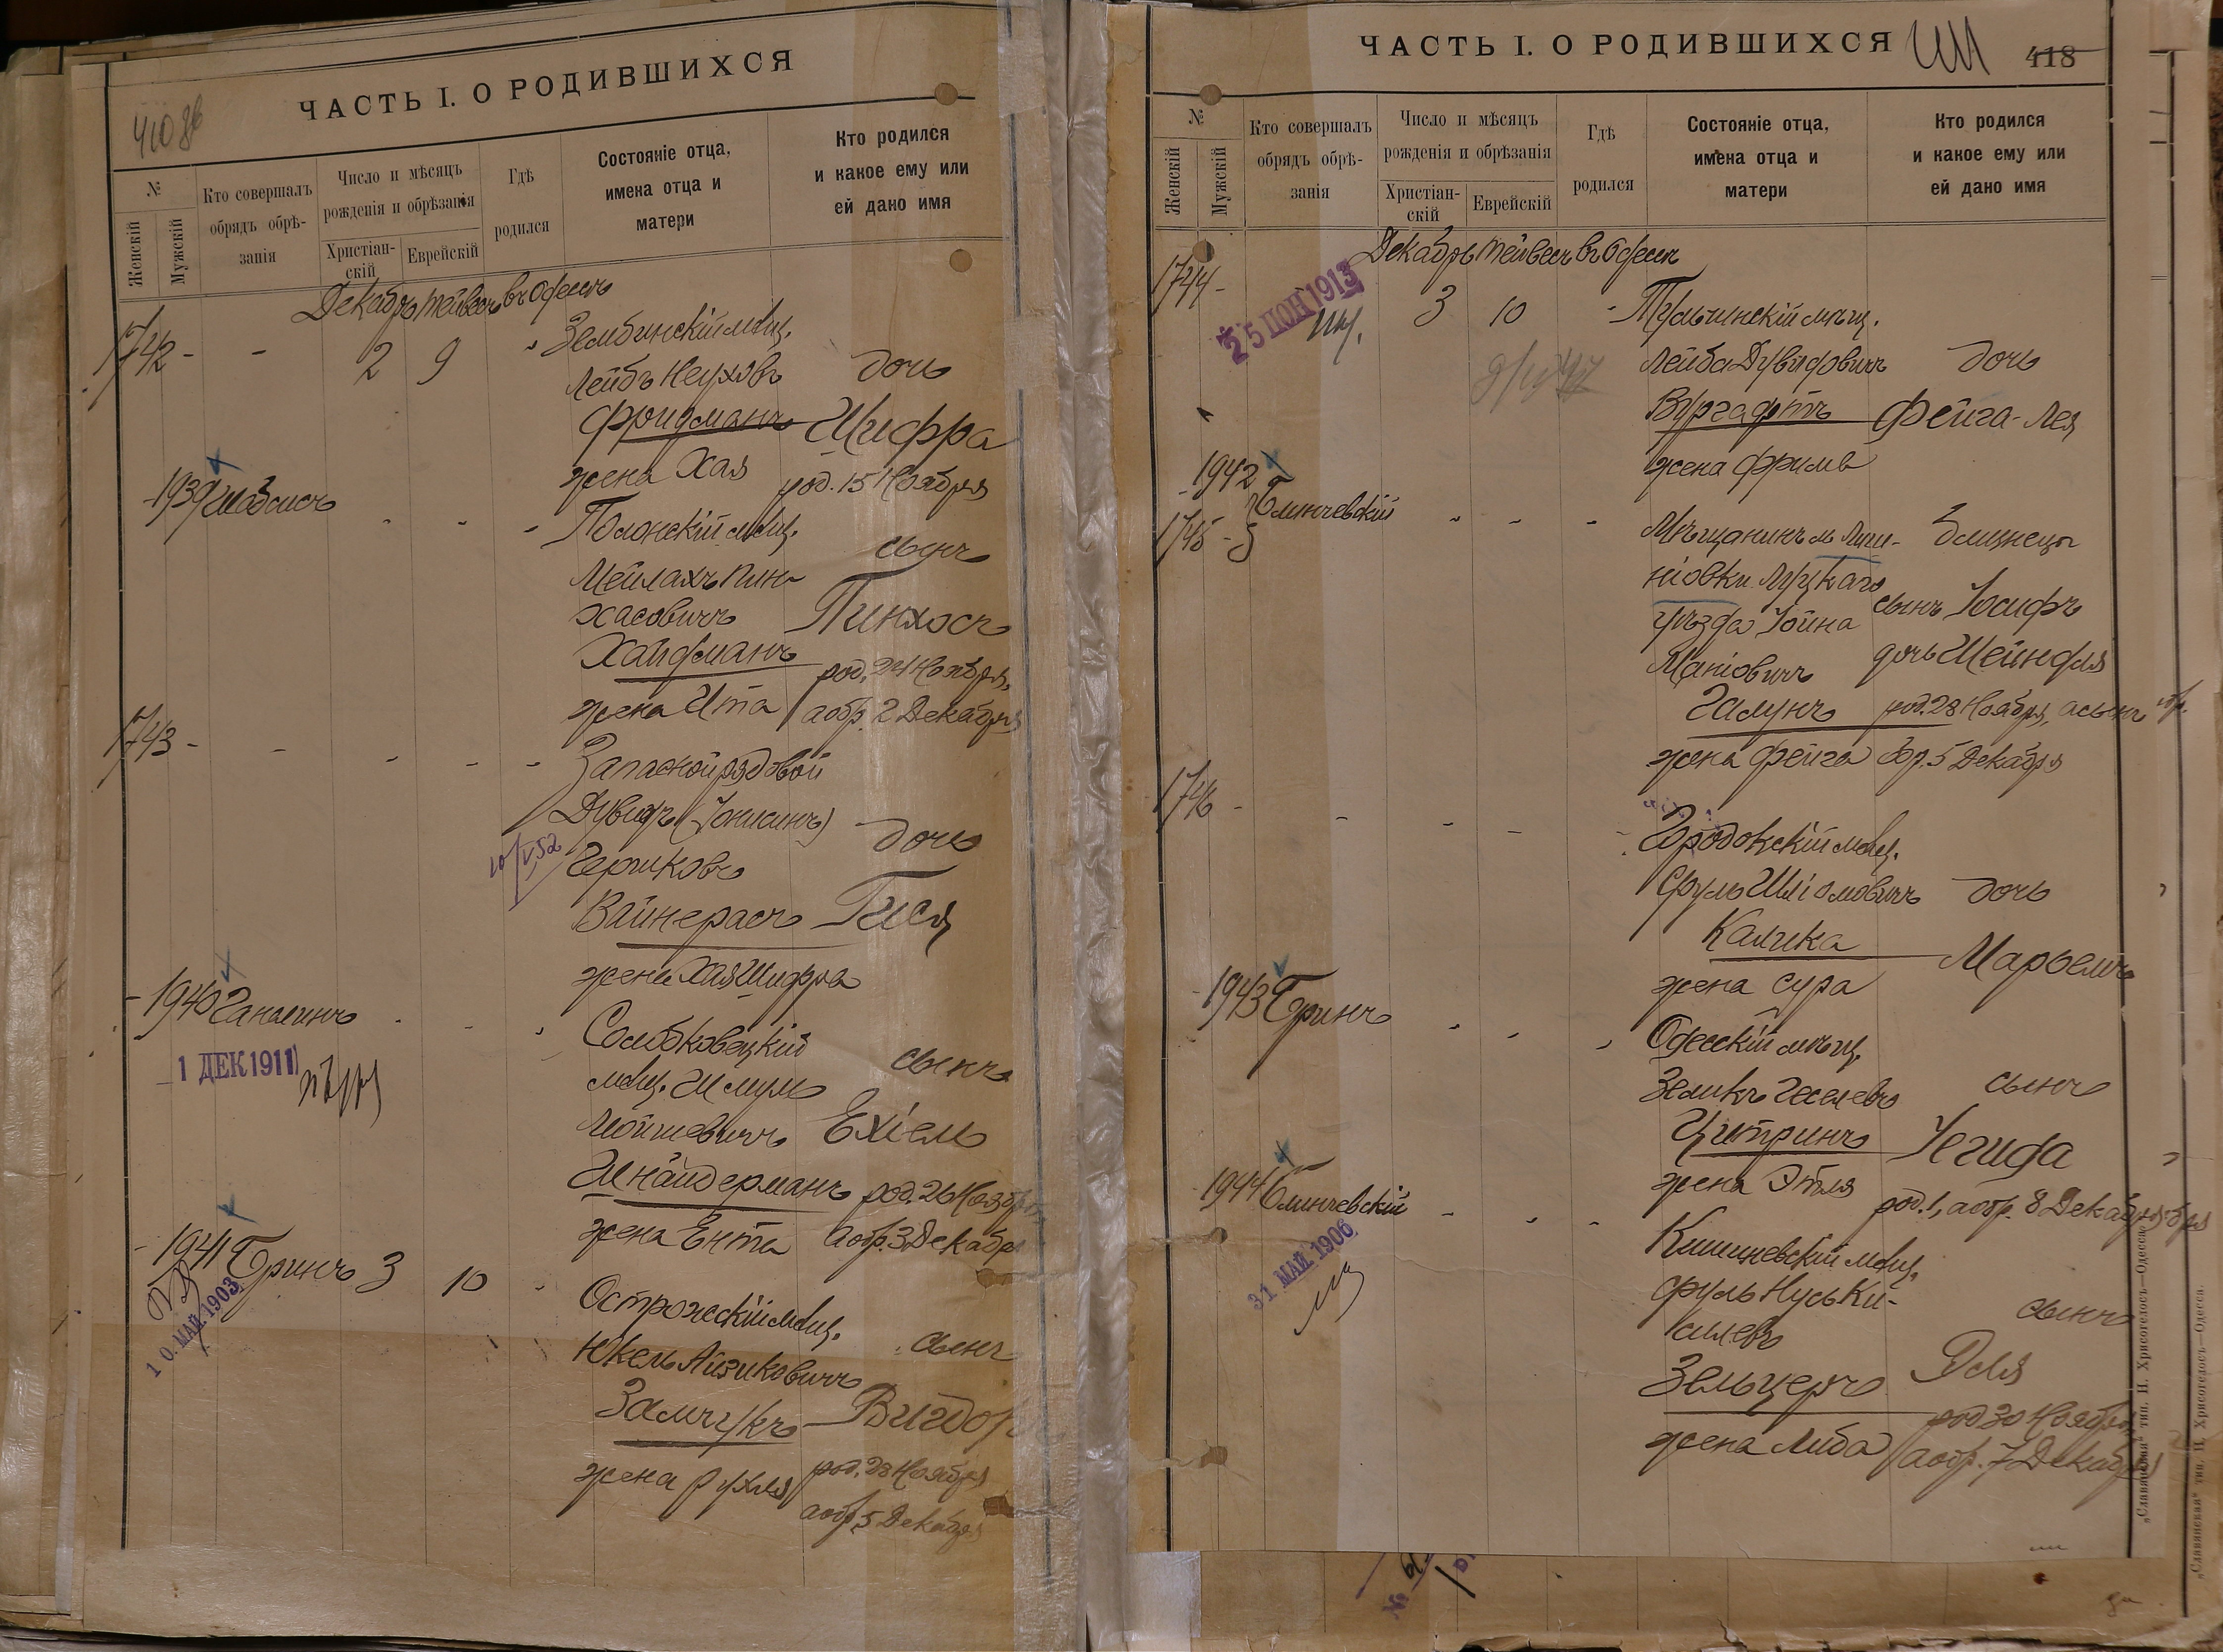 ЧАСТЬ I. О РОДИВШИХСЯ
№
Женскій
Мужскій
Кто совершалъ
обрядъ обрѣ-
занія
Число и мѣсяцъ
рожденія и обрѣзанія
Христіан-
скій
Еврейскій
Гдѣ
родился
Состояніе отца,
имена отца и
матери
Кто родился
и какое ему или
ей дано имя
Декабрь Тейвесъ въ Одессѣ
1742 - - 2 9 " Зембинскій мѣщ.
Лейбъ Неуховъ дочь
Фридманъ Шифра
жена Хая род. 15 Ноября
1939 Шабсисъ - - - Полонскій мѣщ.
сынъ
Мейлахъ Пин-
хасовичъ Пинхосъ
Хайфманъ
род. 24 Ноября,
жена Ита а обр. 2 Декабря
1743 - - - - - Запасной рядовой
Дувидъ (Іонисинъ) дочь
10/V 52
Гершковъ
Вайнерасъ Гися
жена Хая Шифра
1940 Ганшинъ - - " Солобковецкій
1 ДЕК 1911 сынъ
мѣщ. Шмуль
Мойшевичъ Ехіель
Шнайдерманъ род. 26 Ноября
жена Ента а обр. 3 Декабря
1941 Гринъ 3 10 - Острожскій мѣщ.
10. МАЙ. 1903
сынъ
Юкель Айзиковичъ
Замчукъ Вигдоръ
жена Рухля род. 28 Ноября
а обр. 5 Декабря
ЧАСТЬ I. О РОДИВШИХСЯ
418
№
Женскій
Мужскій
Кто совершалъ
обрядъ обрѣ-
занія
Число и мѣсяцъ
рожденія и обрѣзанія
Христіан-
скій
Еврейскій
Гдѣ
родился
Состояніе отца,
имена отца и
матери
Кто родился
и какое ему или
ей дано имя
Декабрь Тейвесъ въ Одессѣ
1744 - 3 10 - Тульчинскій мѣщ.
25 ІЮН 1913
Лейба Дувидовичъ дочь
Вургафтъ Фейга-Лея
жена Фрима
1942 Блинчевскій - - -
1745 - Мѣщанинъ м. Ляш- близнецы
ніовки Луцкаго
сынъ Іосифъ
уѣзда Іойна
дочь Шейндля
Маніовичъ
Галунъ род. 28 Ноября, а сынъ обр.
жена Фейга обр. 5 Декабря
1746 - - - - - Городокскій мѣщ.
Сруль Шліомовичъ дочь
Калика Марьемъ
жена Сура
1943 Гринъ - - - Одесскій мѣщ.
сынъ
Зеликъ Геселевъ
Цитринъ Іегуда
жена Этля род. 1, а обр. 8 Декабря
1944 Блинчевскій - - - Кишиневскій мѣщ.
31 МАЙ 1906
Сруль Нусь Ки-
силевъ сынъ
Зельцеръ
род 30 Ноября,
жена Либа а обр. 7 Декабря
„Славянская“ тип. Н. Хрисогелосъ—Одесса.
„Славянская“ тип. Н. Хрисогелосъ—Одесса.